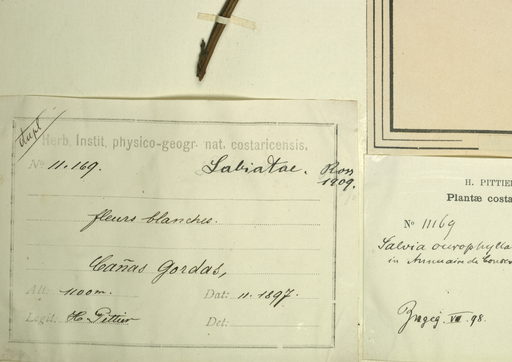 dupl
Herb. Instit. physico-geogr. nat. costaricensis.
No 11.169. Labiatae.
1909.
fleurs blanches.
Cañas Gordas,
Alt: 1100m. Dat: 11.1897.
Legit: H. Pittier Det:
H. PITTIE
Plantæ costa
No 11169
Salvia
in Annuaire de Conser
VII 98.